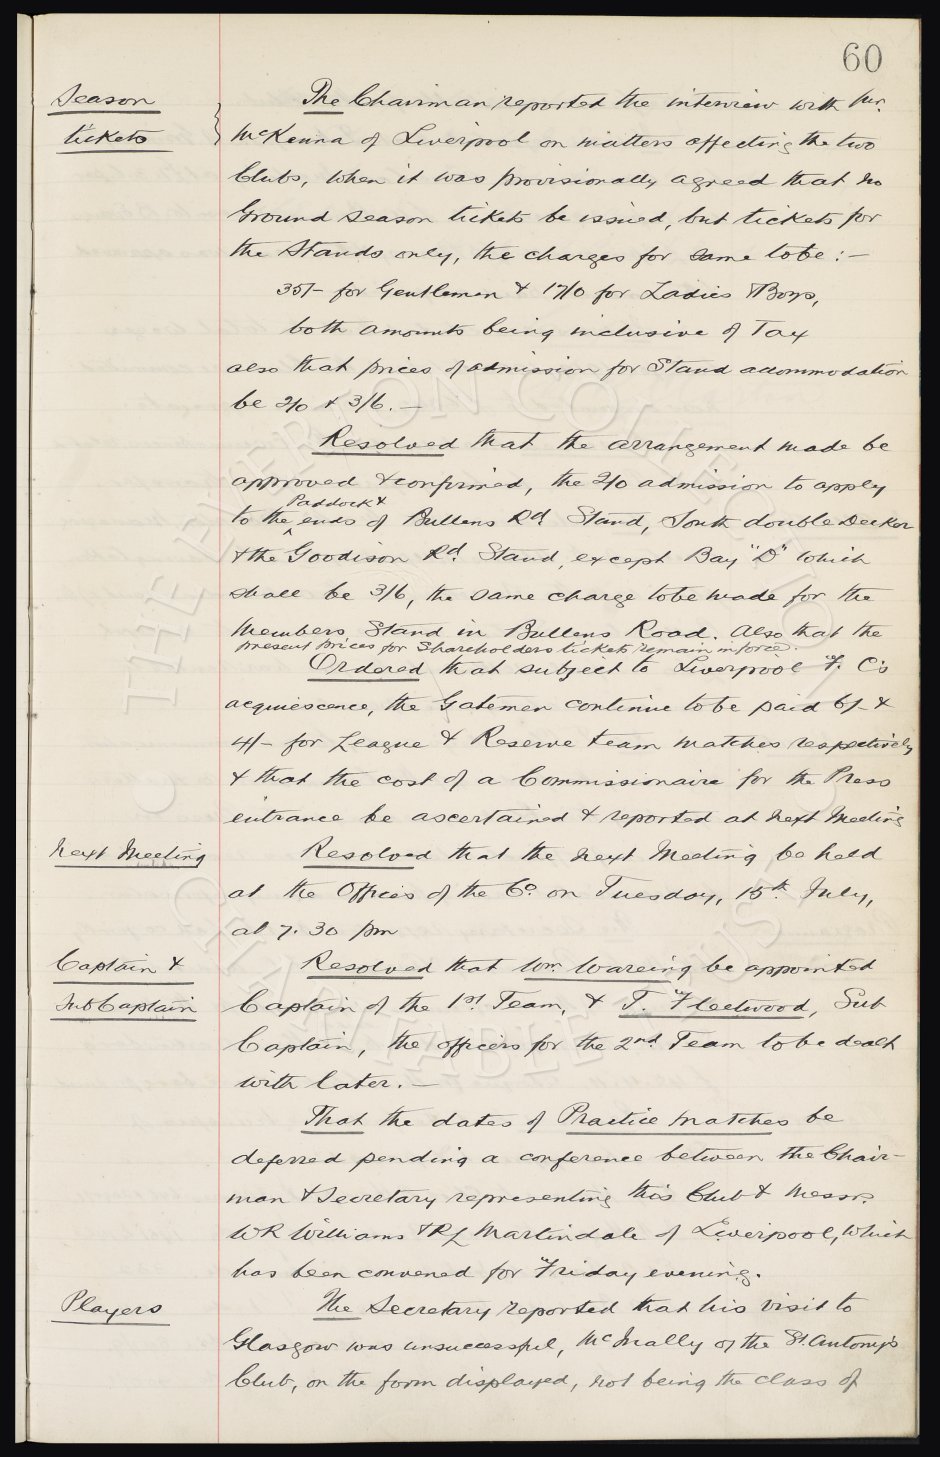 60
Season
tickets
The Chairman reported the interview with Mr.
McKenna of Liverpool on matters affecting the two
Clubs, when it was provisionally agreed that no
Ground season tickets be issued, but tickets for
the Stands only, the charges for same to be :-
35/- for Gentlemen & 17/6 for Ladies & Boys,
both amounts being inclusive of Tax
also that prices of admission for Stand accommodation
be 2/6 & 3/6. -
Resolved that the arrangement made be
approved & confirmed, the 2/6 admission to apply
Paddock &
to the ends of Bullens Rd Stand, South double Decker
& the Goodison Rd. Stand, except Bay "D" which
shall be 3/6, the same charge to be made for the
Members Stand in Bullens Road. Also that the
present prices for Shareholders tickets remain in force.
Ordered that subject to Liverpool F. C's
acquiescence, the Gatemen continue to be paid 6/- &
4/- for League & Reserve team matches respectively
& that the cost of a Commissionaire for the Press
entrance be ascertained & reported at next Meeting
Next Meeting
Resolved that the next Meeting be held
at the Offices of the Co. on Tuesday, 15th. July,
at 7.30 pm
Captain &
Sub Captain
Resolved that Wm. Wareing be appointed
Captain of the 1st. Team, & T. Fleetwood, Sub
Captain, the officers for the 2nd. Team to be dealt
with later. -
That the dates of Practice Matches be
deferred pending a conference between the Chair-
man & Secretary representing this Club & Messrs.
WR Williams & RL Martindale of Liverpool, which
has been convened for Friday evening.
Players
The Secretary reported that his visit to
Glasgow was unsuccessful, McInally of the St. Antony's
Club, on the form displayed, not being the class of
THE EVERTON COLLECTION
CHARITABLE TRUST